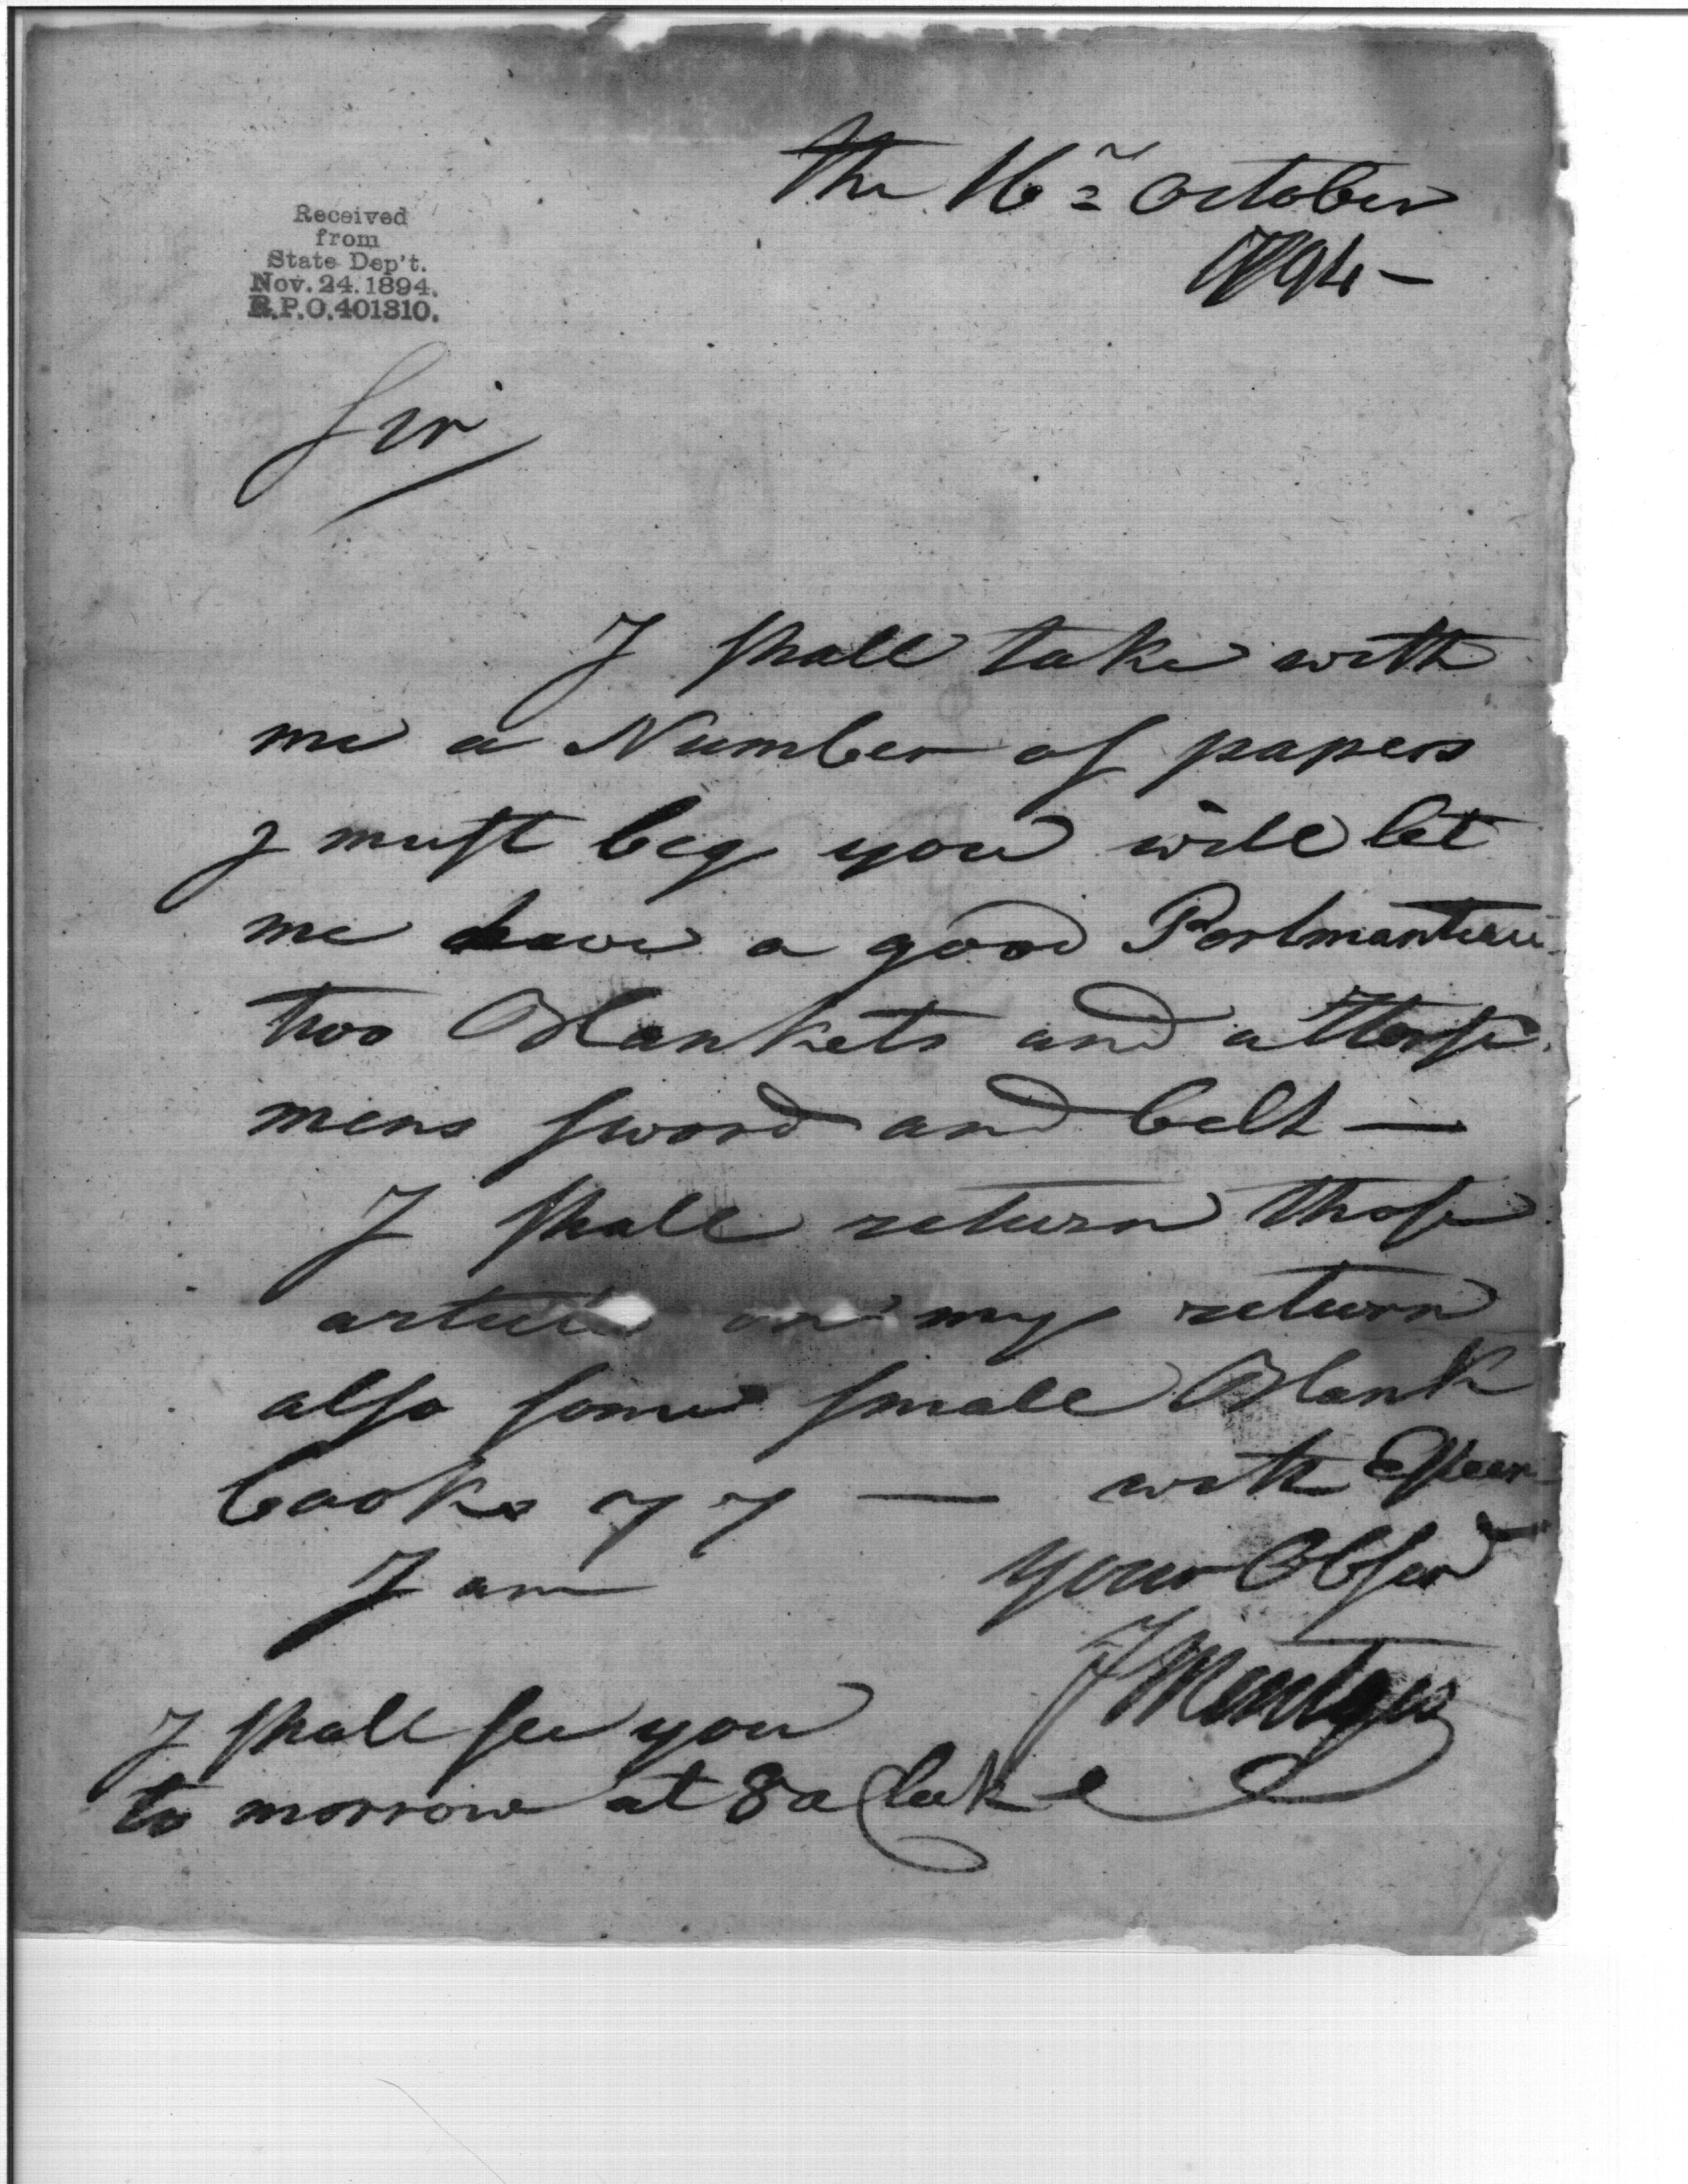 the 16th October
1794 —
Received
from
State Dep't.
Nov. 24. 1894.
R.P.O. 401310.
Sir
I shall take with
me a Number of papers
I must beg you will let
me have a good Portmanteau
two Blankets and a Horse
mens sword and belt —
I shall return those
articles on my return
also some small Blank
books — with
I am your Obser
F Mentges
I shall see you
to morrow at 8 a Clock